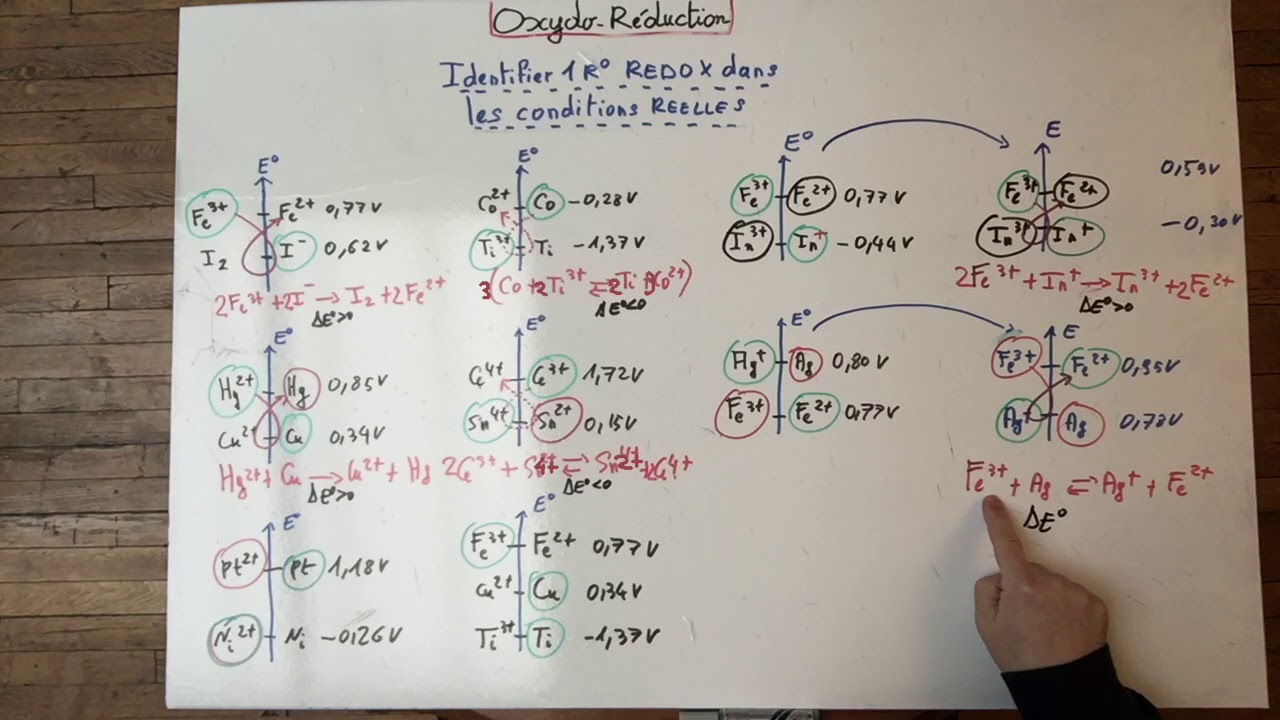 Oxydo-Réduction
Identifier 1 R° REDOX dans
les conditions REELLES
E°
Fe³⁺ Fe²⁺ 0,77 V
I₂ I⁻ 0,62 V
2Fe³⁺ + 2I⁻ → I₂ + 2Fe²⁺
ΔE°>0
E°
Co²⁺ Co -0,28 V
Ti³⁺ Ti -1,37 V
3(Co + 2Ti³⁺ ⇌ 2Ti + 3Co²⁺)
ΔE°<0
E°
Fe³⁺ Fe²⁺ 0,77 V
In³⁺ In⁺ -0,44 V
E
Fe³⁺ Fe²⁺ 0,59 V
In³⁺ In⁺ -0,30 V
2Fe³⁺ + In⁺ → In³⁺ + 2Fe²⁺
ΔE°>0
E°
Hg²⁺ Hg 0,85 V
Cu²⁺ Cu 0,34 V
Hg²⁺ + Cu → Cu²⁺ + Hg
ΔE°>0
E°
Ce⁴⁺ Ce³⁺ 1,72 V
Sn⁴⁺ Sn²⁺ 0,15 V
2Ce³⁺ + Sn⁴⁺ ⇌ Sn²⁺ + 2Ce⁴⁺
ΔE°<0
E°
Ag⁺ Ag 0,80 V
Fe³⁺ Fe²⁺ 0,77 V
E
Fe³⁺ Fe²⁺ 0,95 V
Ag⁺ Ag 0,78 V
Fe³⁺ + Ag ⇌ Ag⁺ + Fe²⁺
ΔE°
E°
Pt²⁺ Pt 1,18 V
Ni²⁺ Ni -0,26 V
E°
Fe³⁺ Fe²⁺ 0,77 V
Cu²⁺ Cu 0,34 V
Ti³⁺ Ti -1,37 V